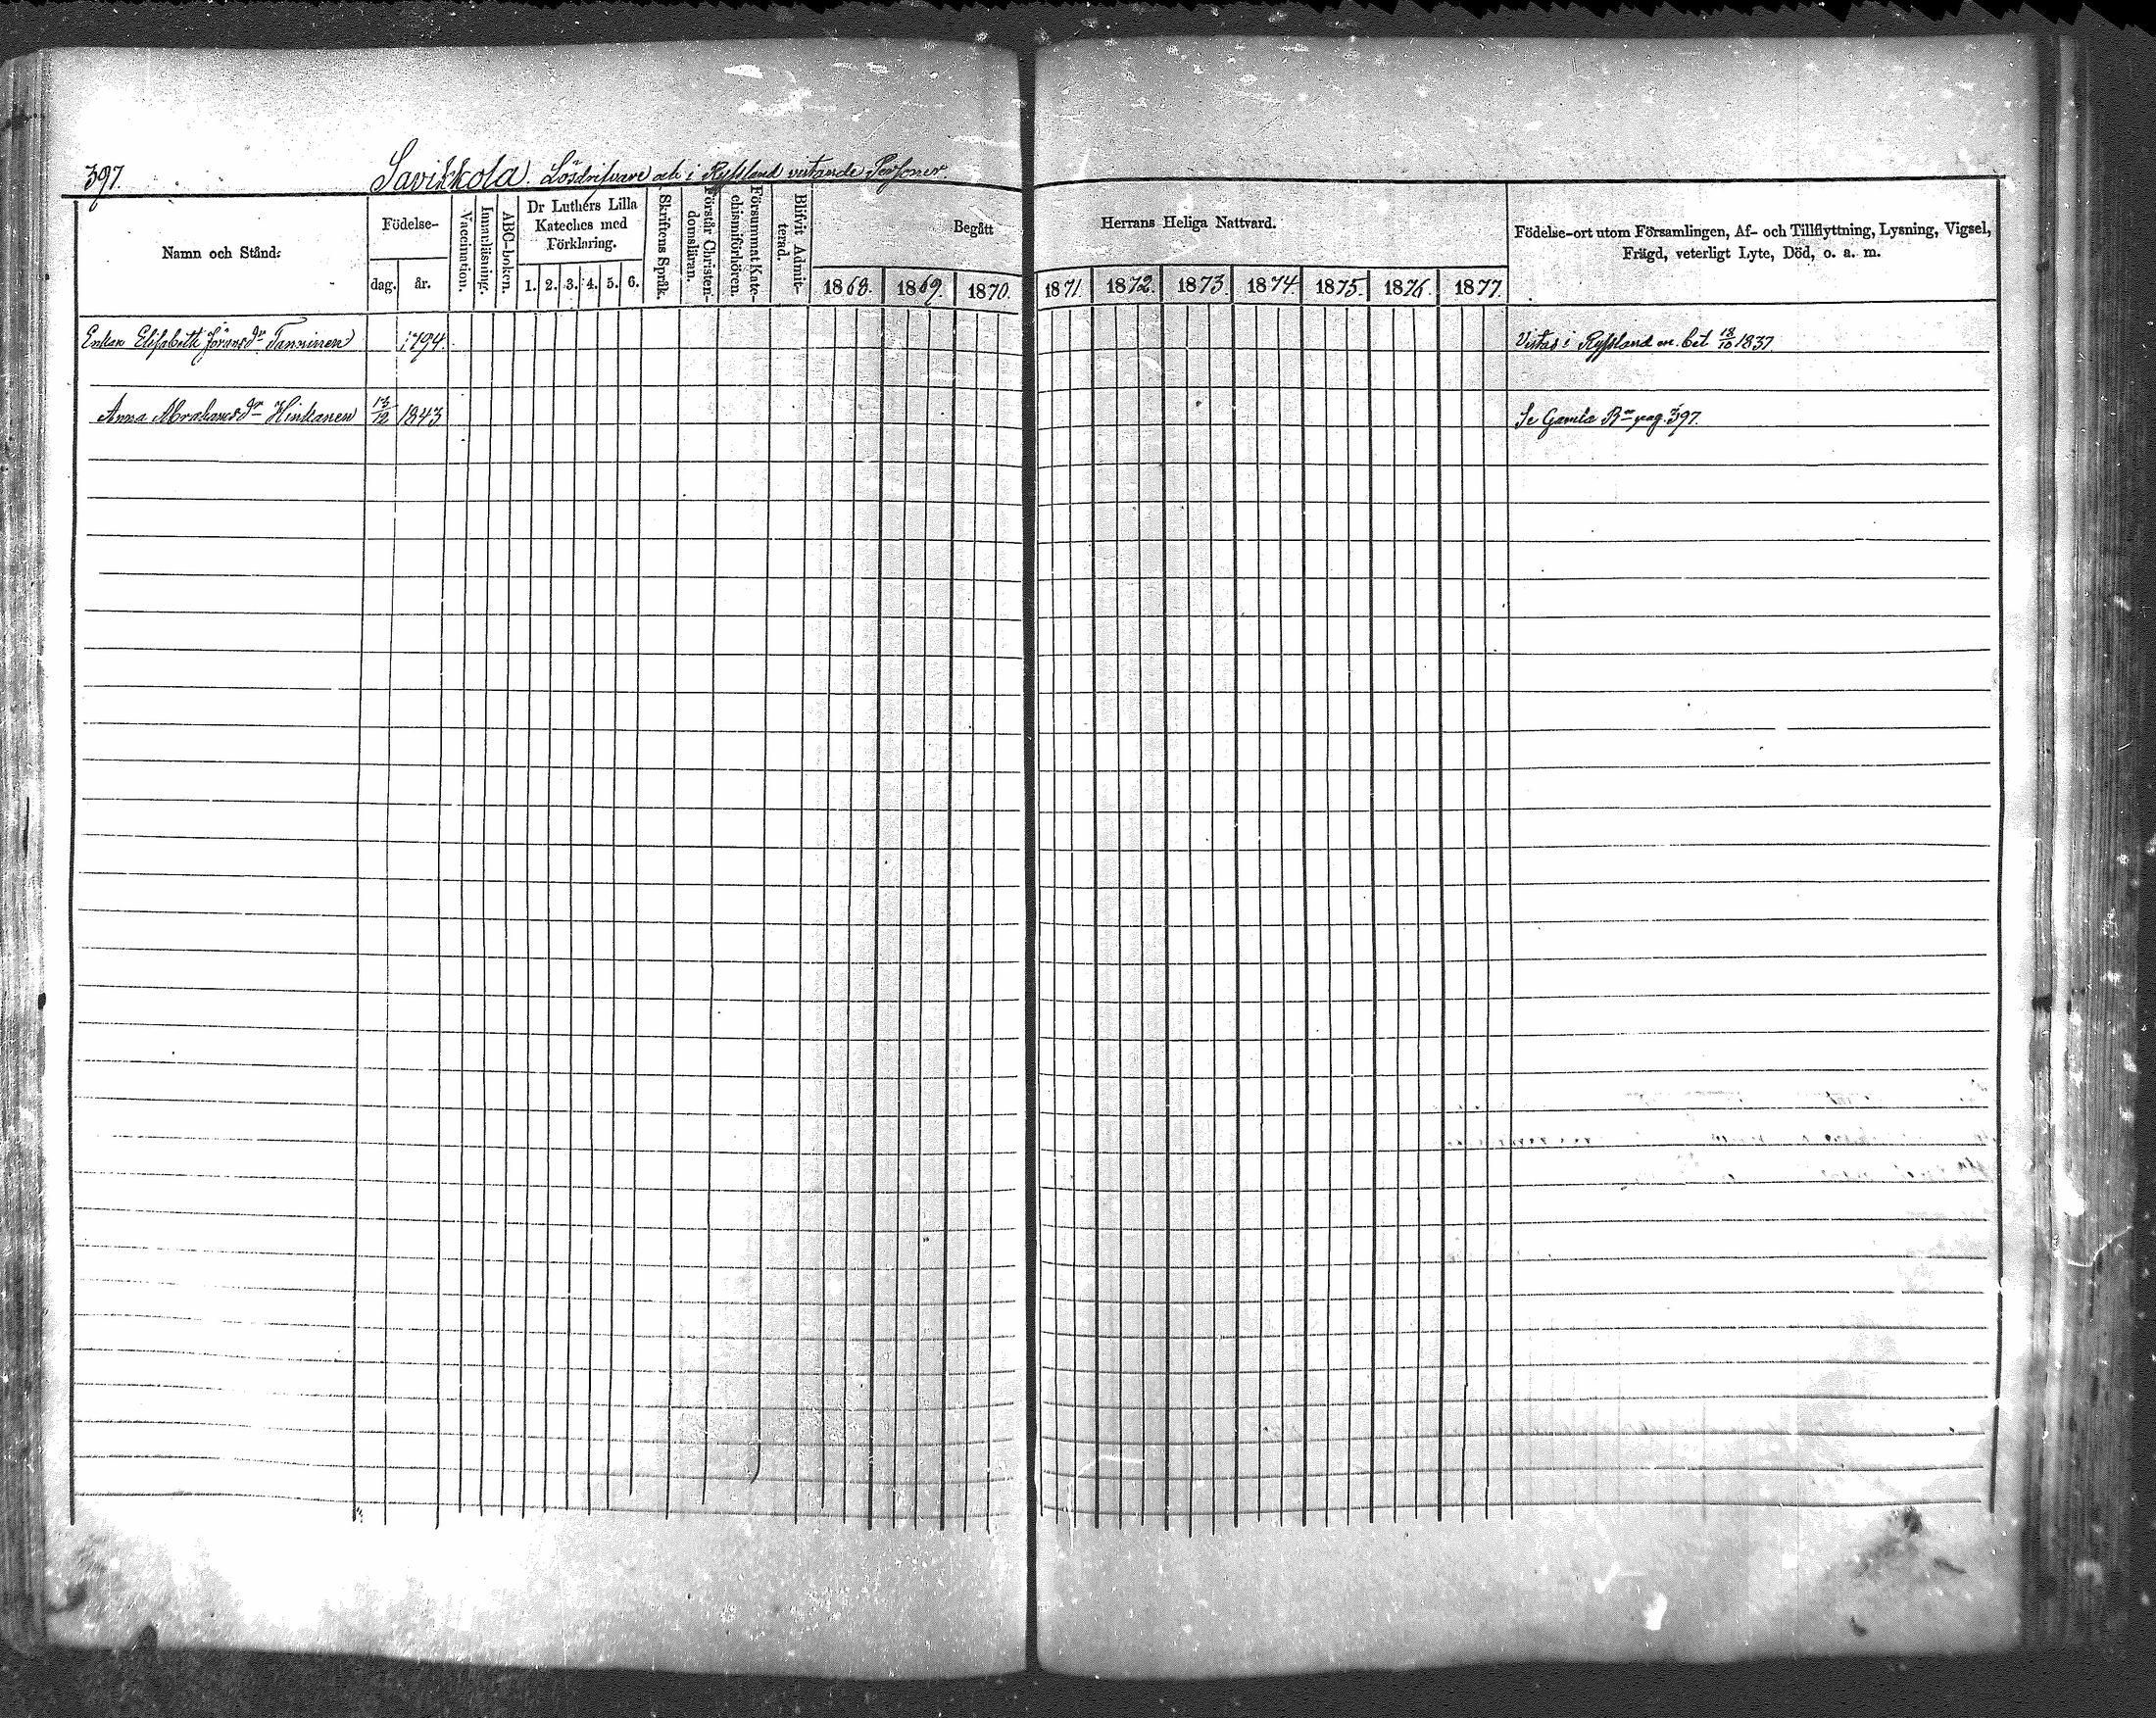 397.
Savikkola. Lösdrifvare och i Ryssland vistande Personer.
Namn och Stånd.
Födelse-
dag.
år.
Vaccination.
Innanläsning.
ABC-boken.
Dr Luthers Lilla
Kateches med
Förklaring.
1. 2. 3. 4. 5. 6.
Skriftens Språk.
Förstår Christen-
domsläran.
Försummat Kate-
chismiförhören.
Blifvit Admit-
terad.
Begått
Herrans Heliga Nattvard.
1868. 1869. 1870. 1871. 1872. 1873. 1874. 1875. 1876. 1877.
Födelse-ort utom Församlingen, Af- och Tillflyttning, Lysning, Vigsel,
Frägd, veterligt Lyte, Död, o. a. m.
Enkan Elisabeth Jöransdr Tanninen 1794. Vistas i Ryssland bet 18/10 1837
Anna Abrahamsdr Hinkanen 13/12 1843 Se Gamla Bn pag. 397.